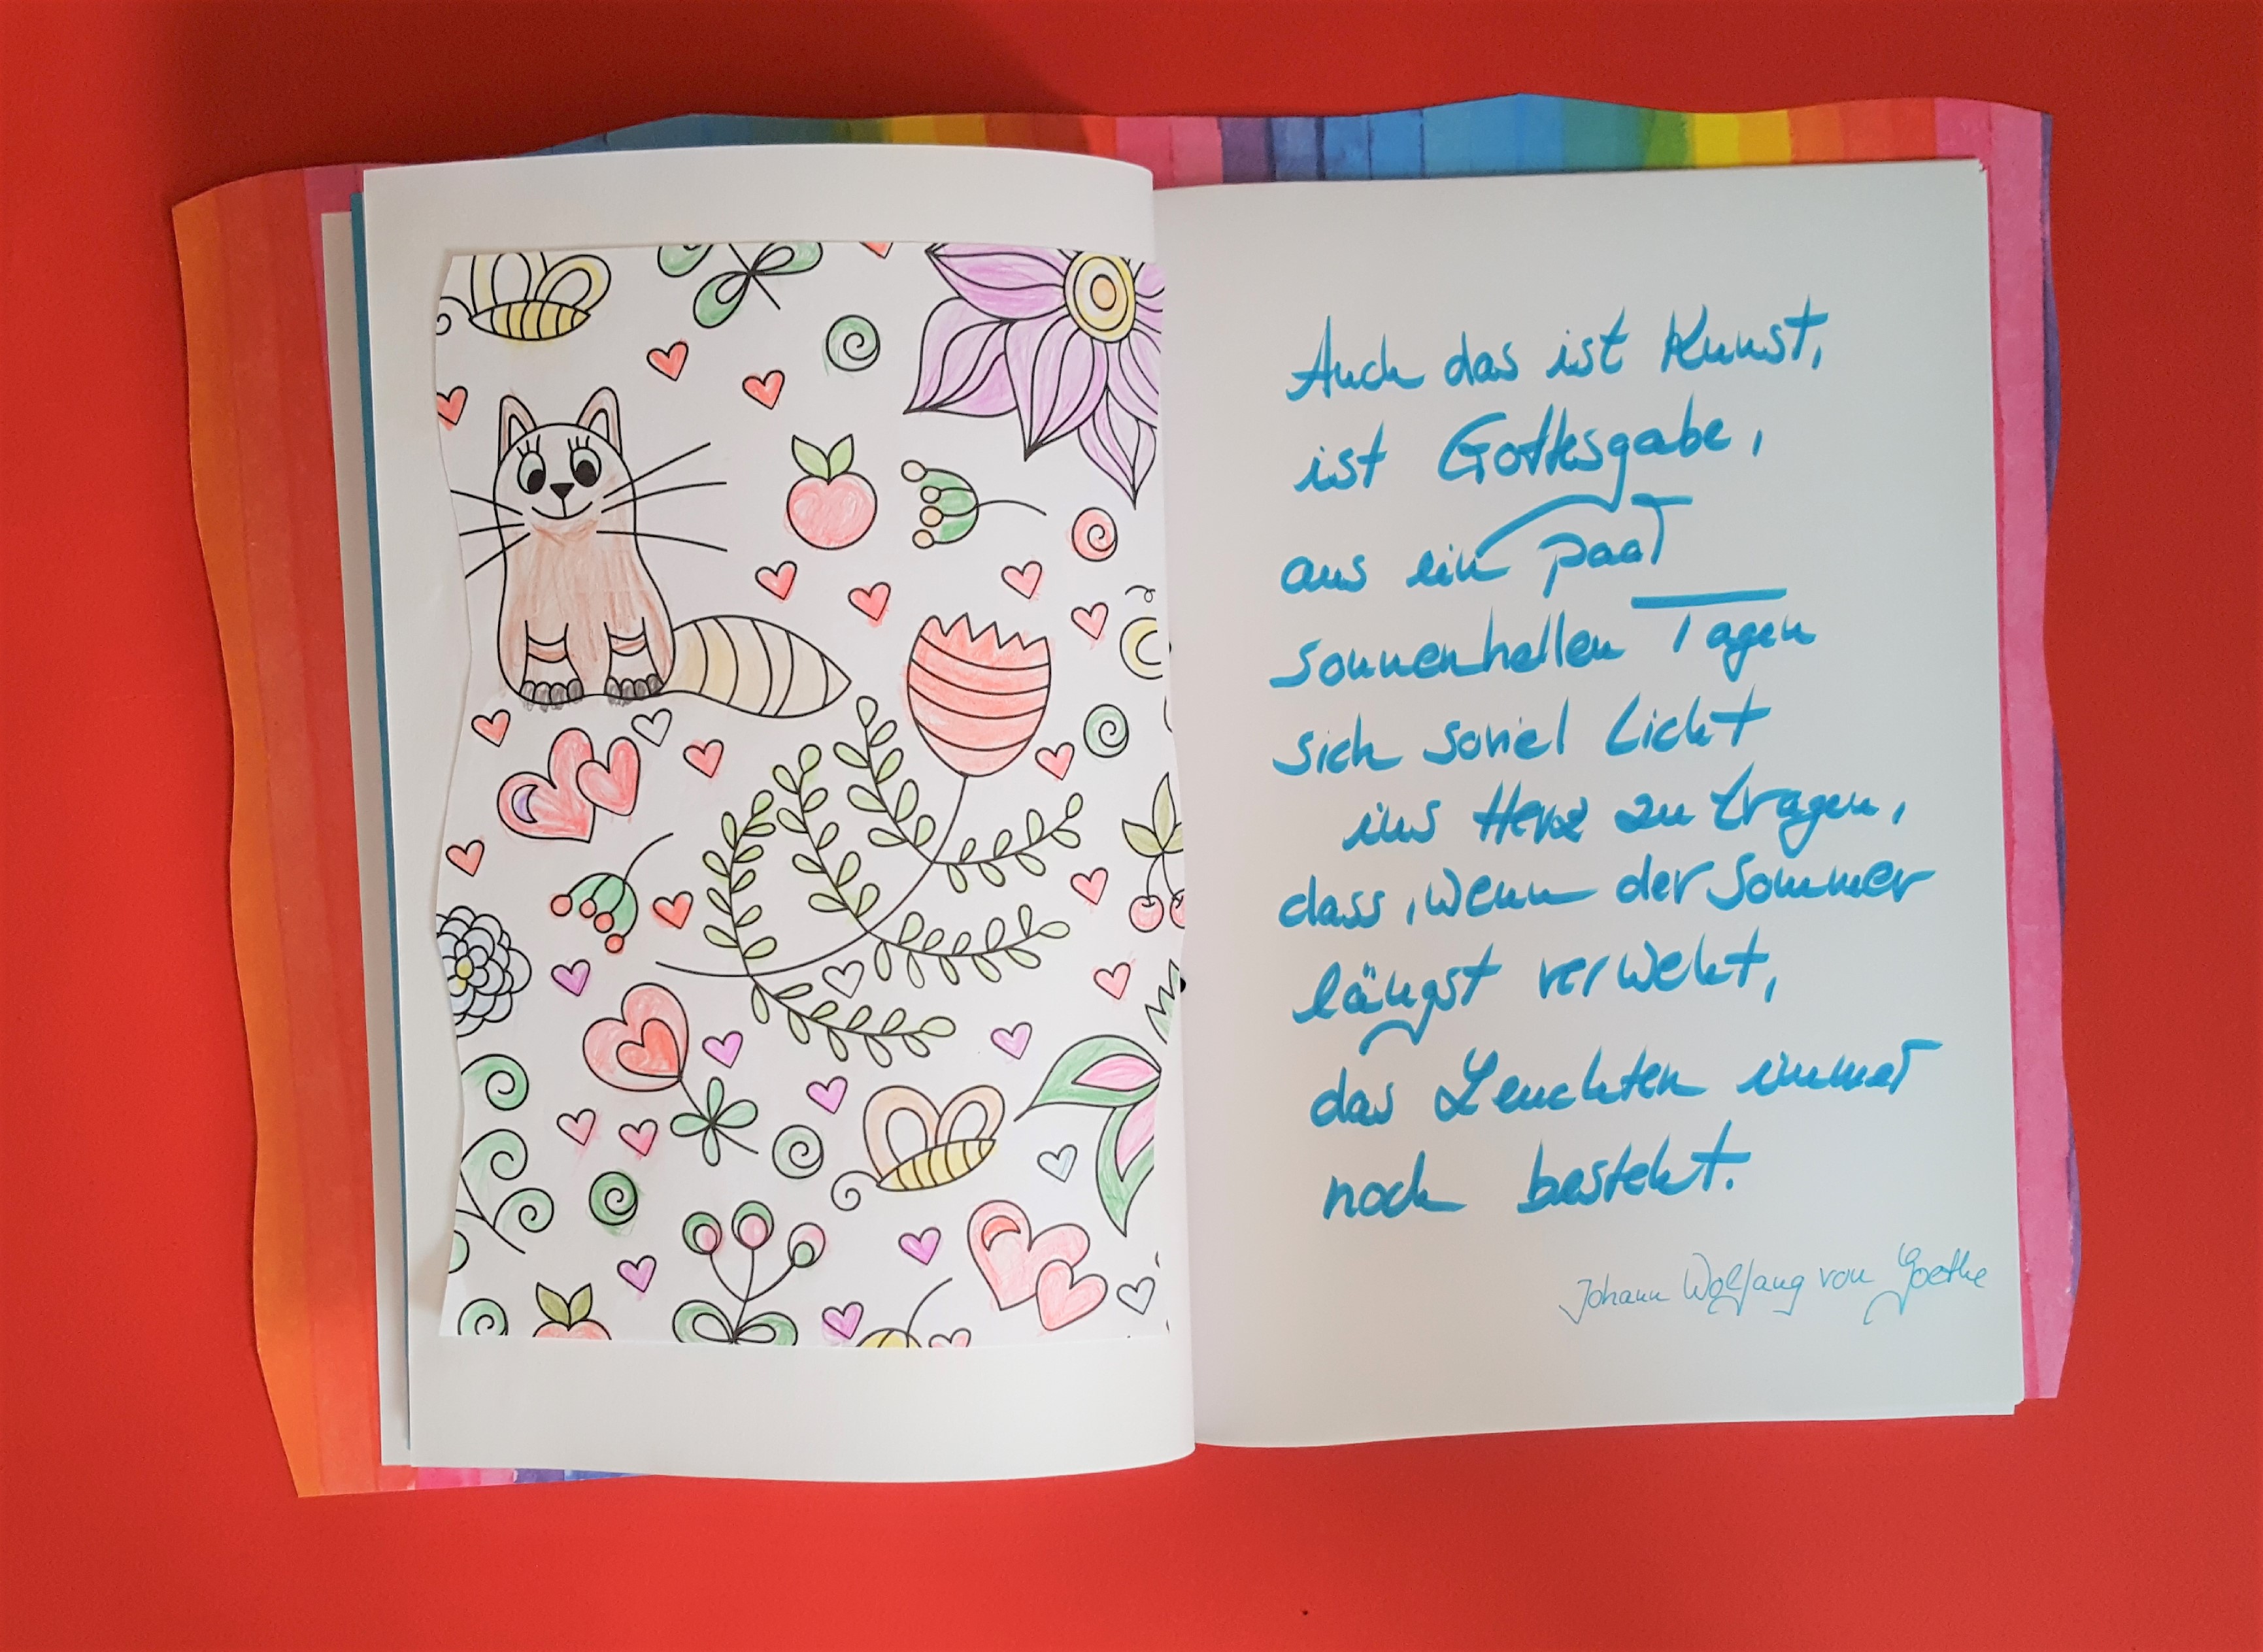 Auch das ist Kunst,
ist Gottesgabe,
aus ein paar
sonnenhellen Tagen
sich soviel Licht
ins Herz zu tragen,
dass, wenn der Sommer
längst verweht,
das Leuchten immer
noch besteht.
Johann Wolfgang von Goethe